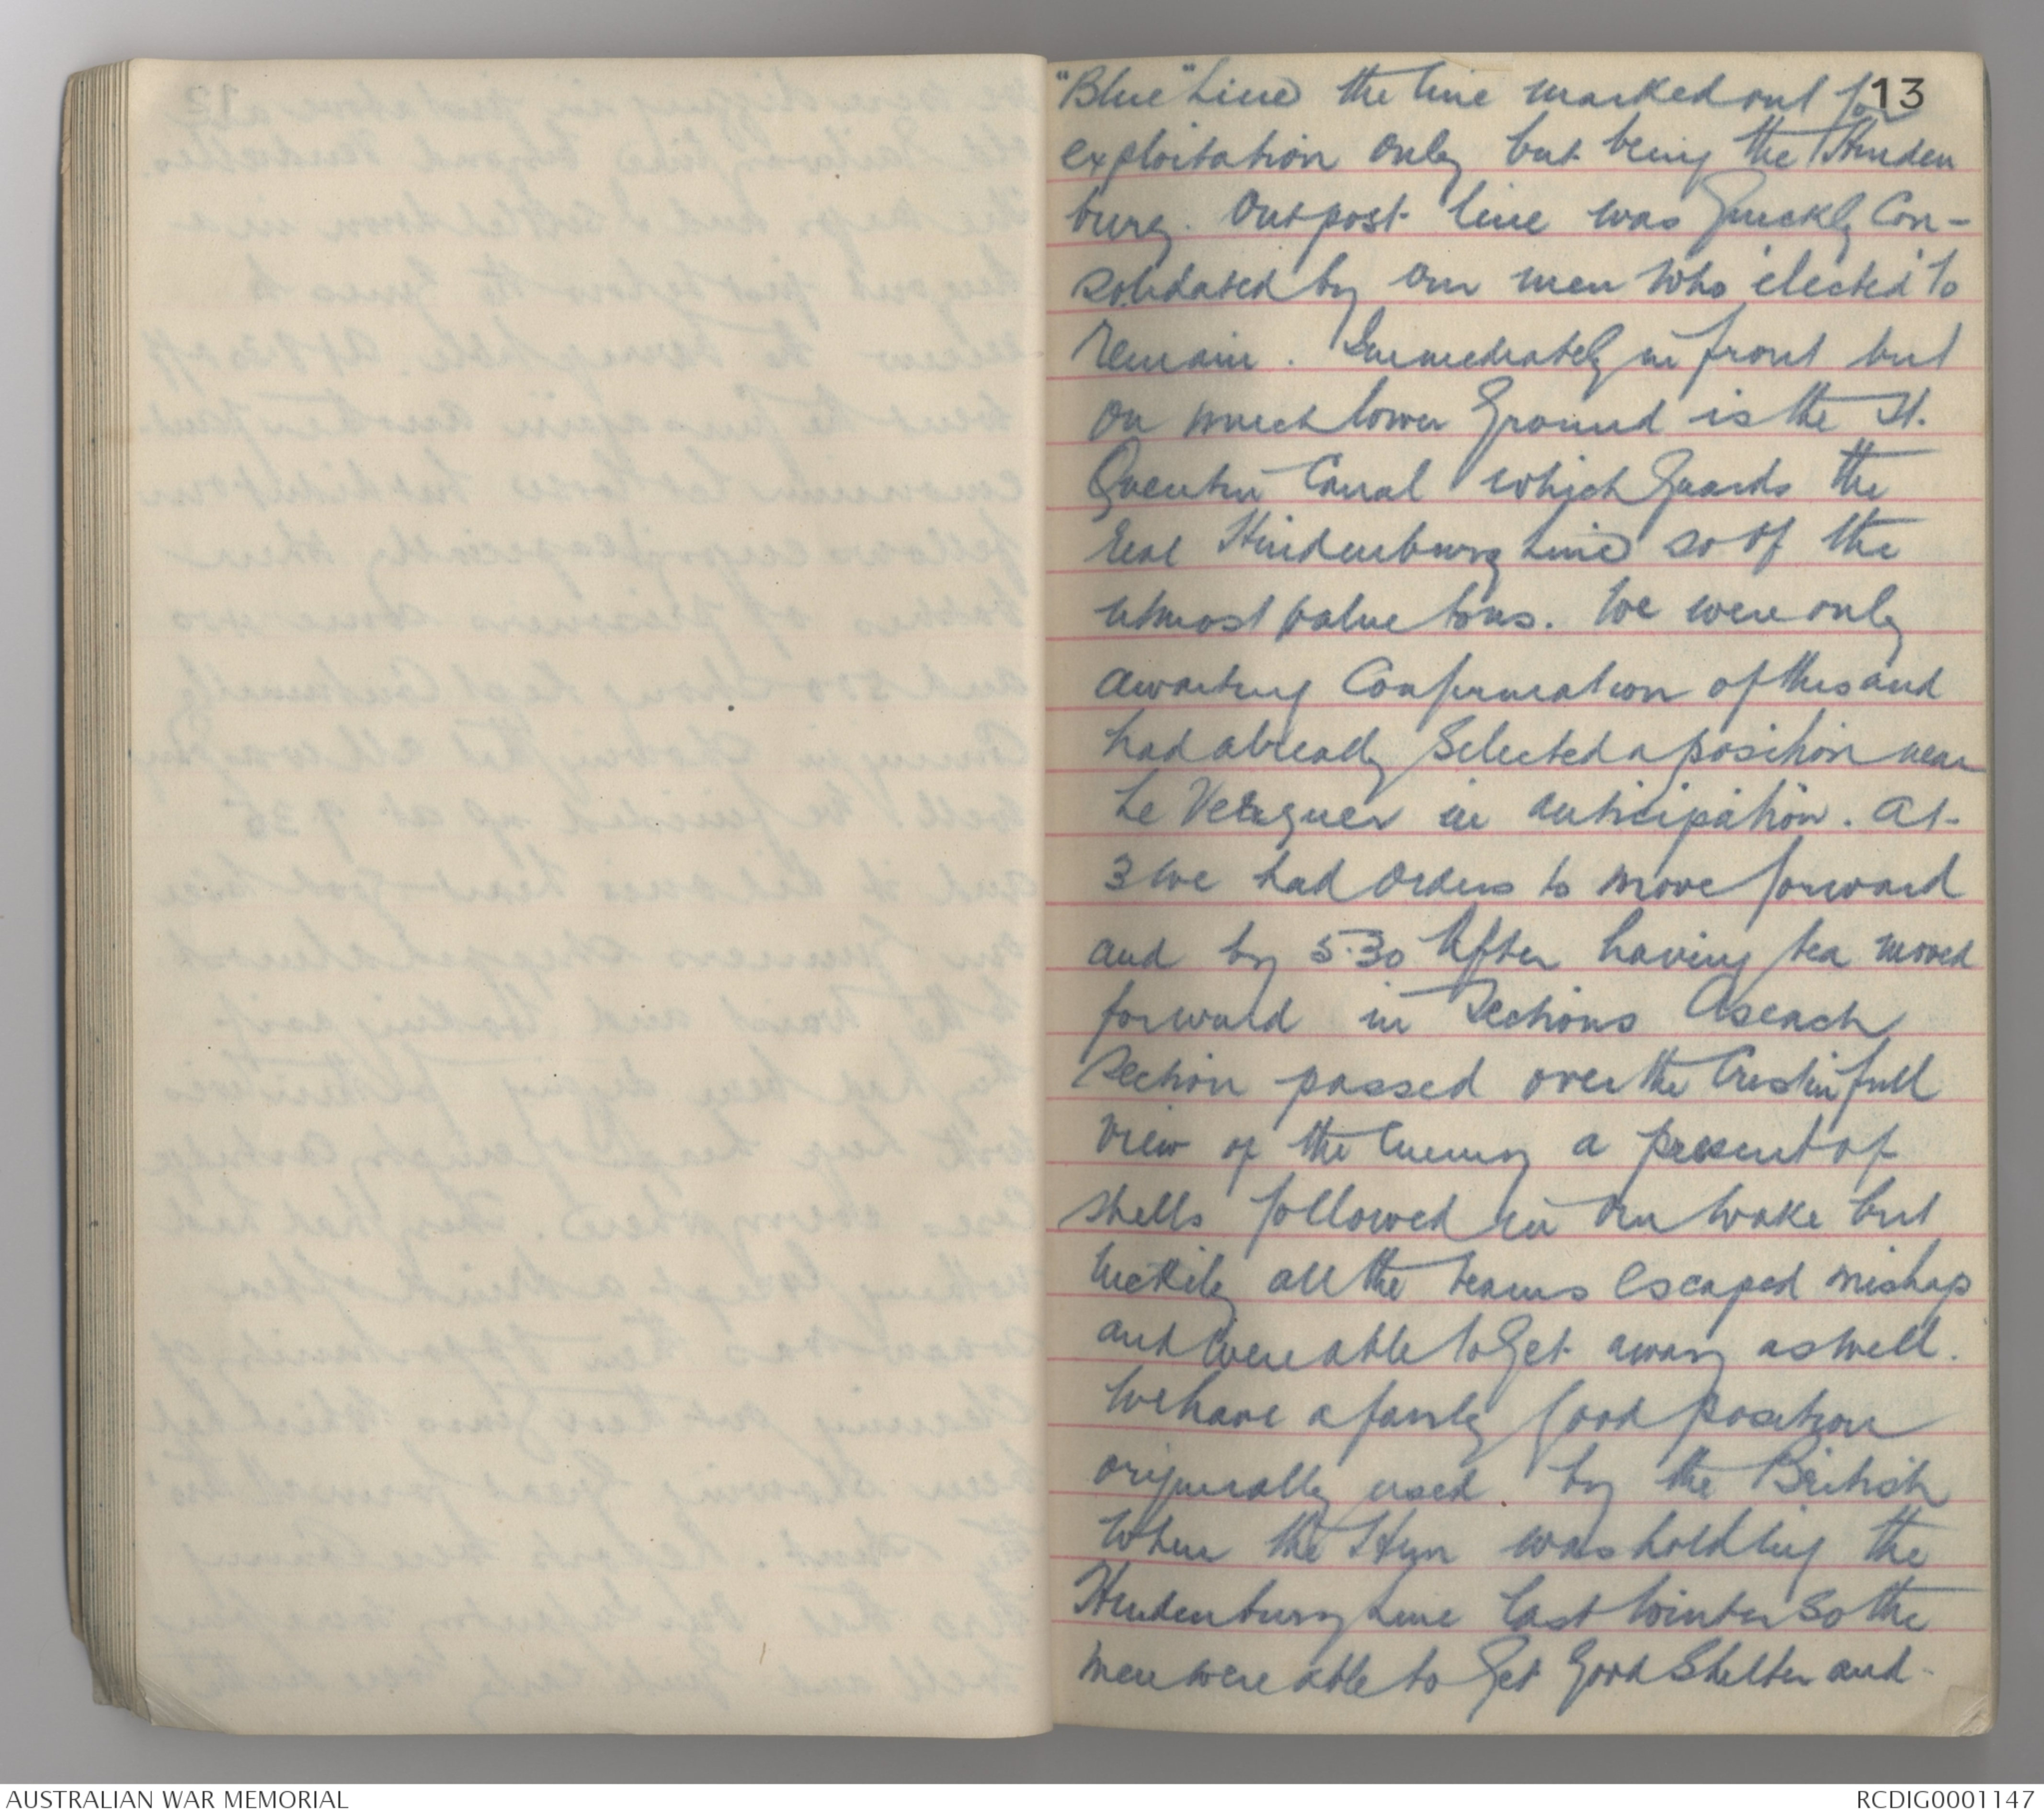 13
"Blue" Line the line marked out for
exploitation only but being the Hinden
burg. Outpost line was quickly Con-
solidated by our men who elected to
remain. Immediately in front but
on much lower ground is the St.
Quentin Canal which guards the
real Hindenburg Line so of the
utmost value to us. We were only
awaiting Confirmation of this and
had already selected a position near
Le Verguier in anticipation. At
3 we had orders to move forward
and by 5.30 after having tea moved
forward in Sections As each
Section passed over the Crest in full
view of the Enemy a present of
shells followed in our wake but
luckily all the teams escaped mishap
and were able to get away as well.
We have a fairly good position
originally used by the British
when the Hun was holding the
Hindenburg Line last Winter so the
men were able to get good Shelter and
AUSTRALIAN WAR MEMORIAL
RCDIG0001147